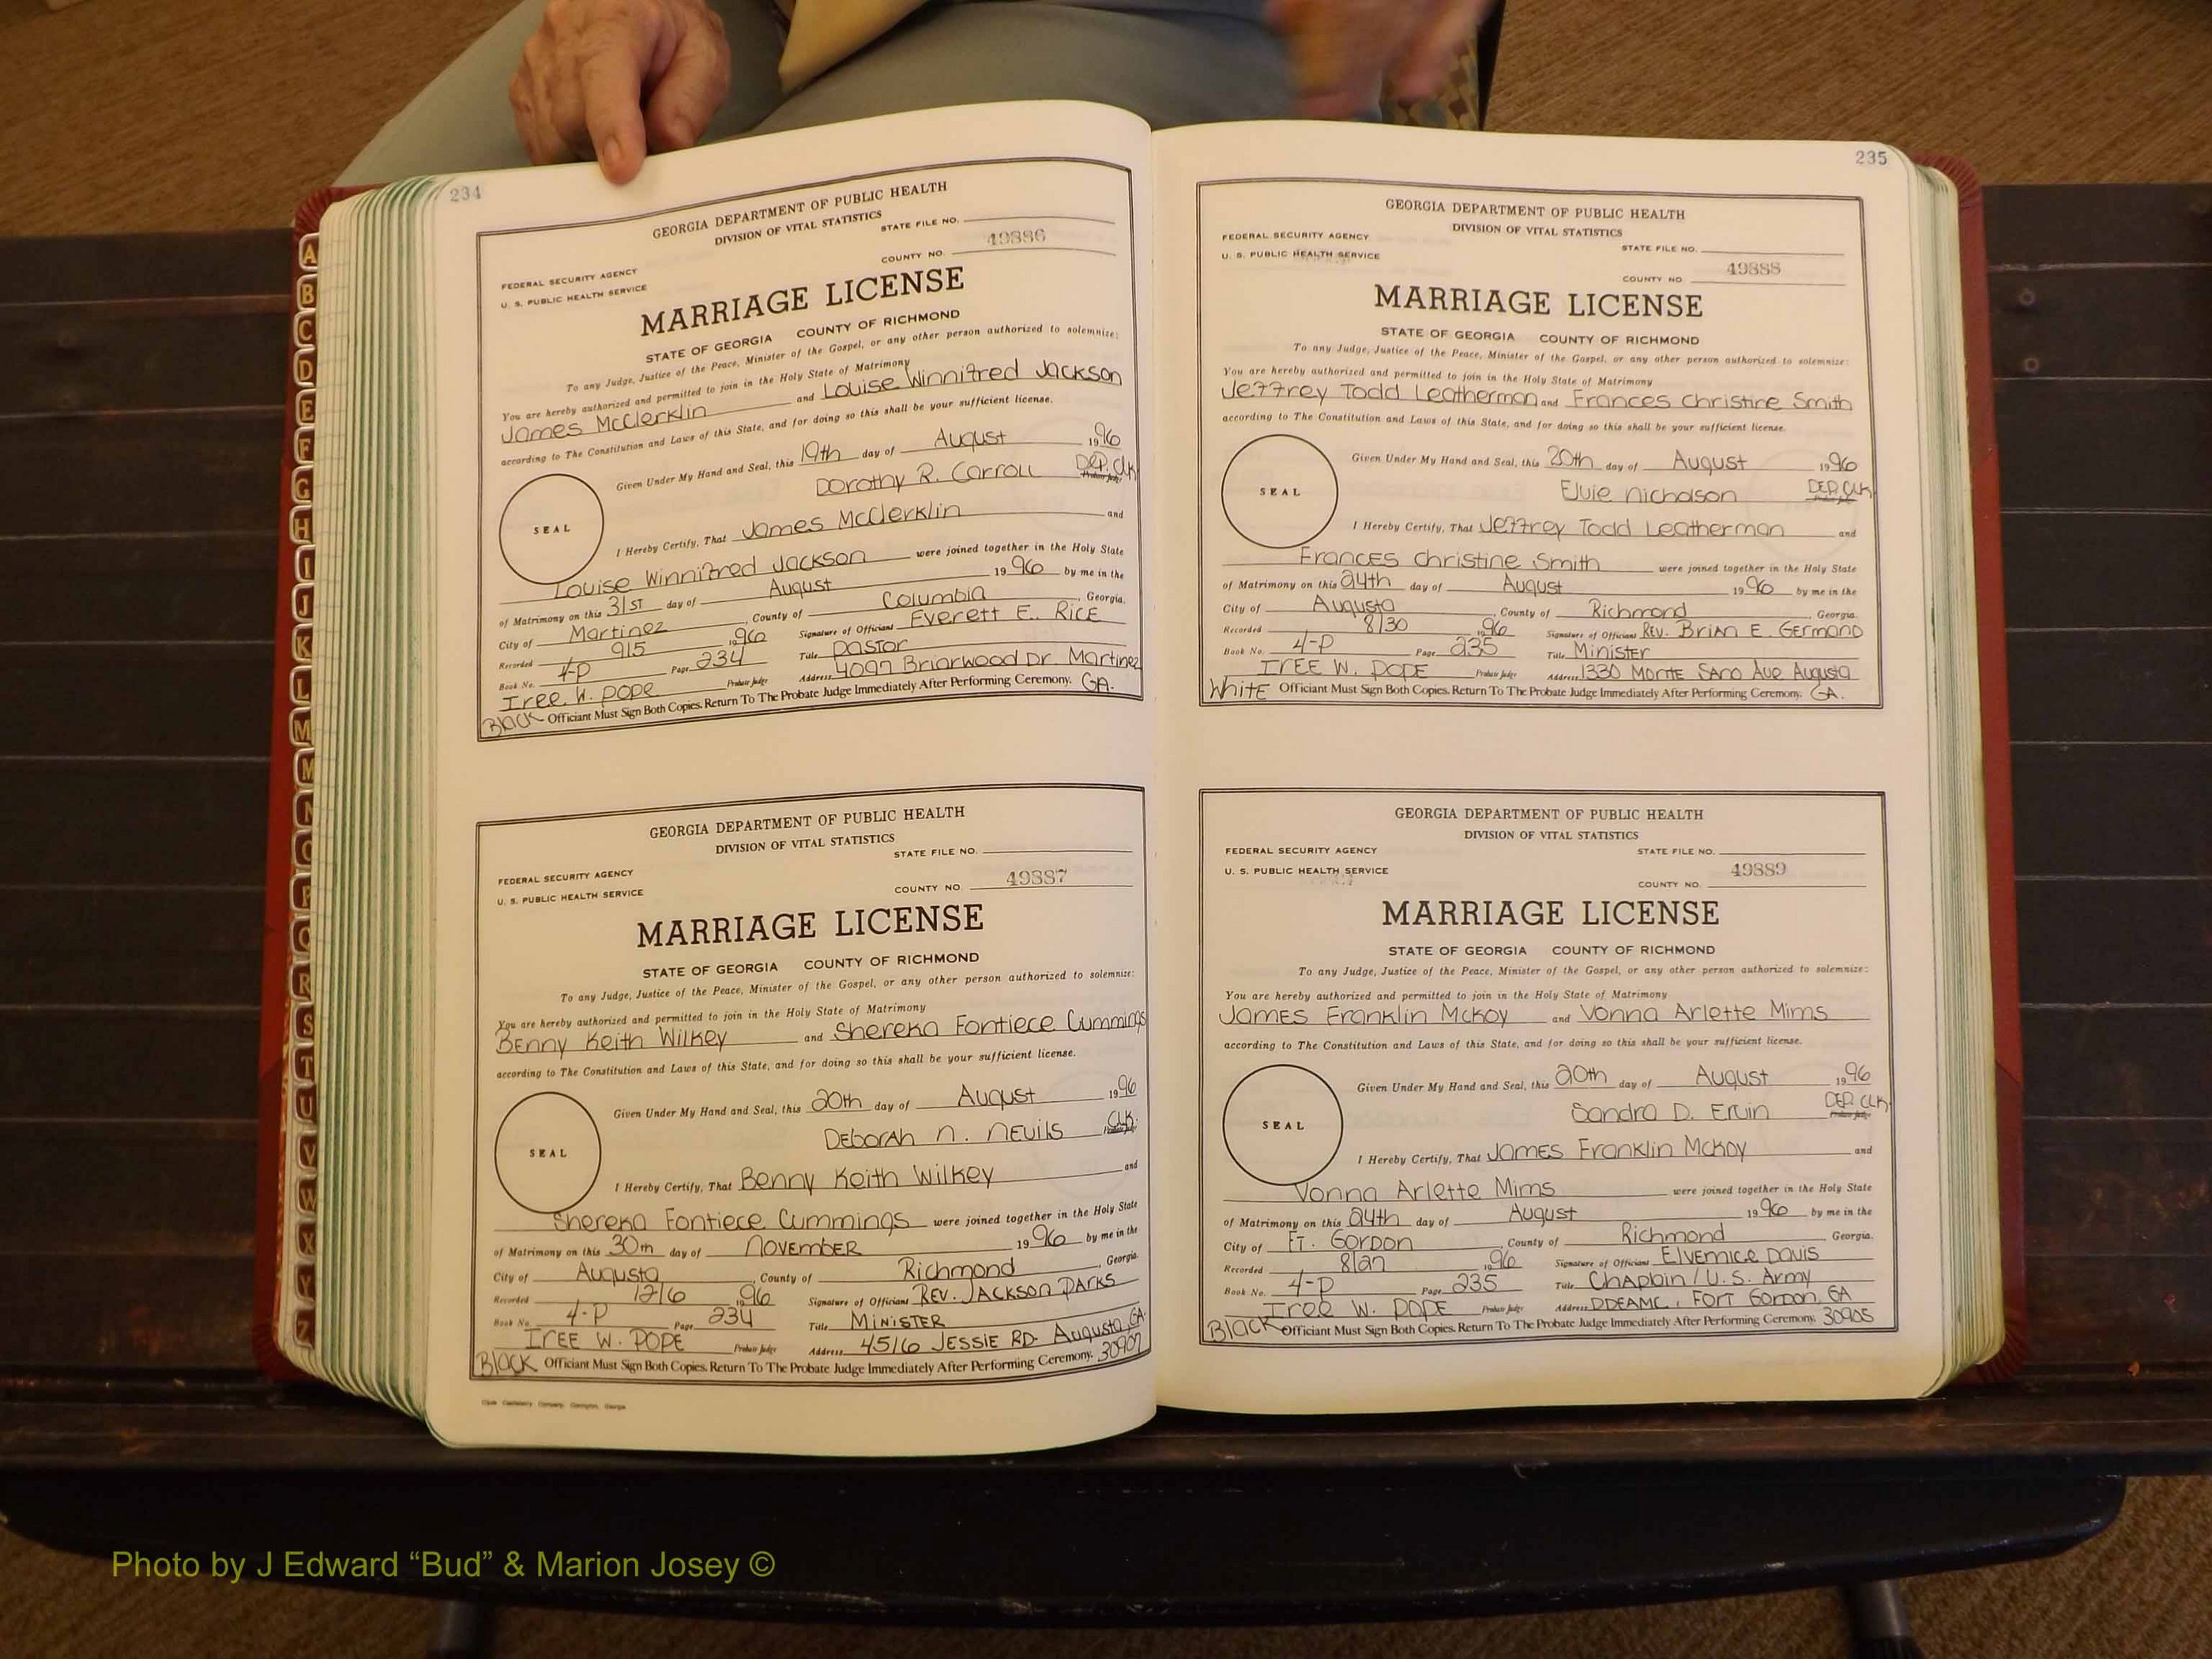 234
GEORGIA DEPARTMENT OF PUBLIC HEALTH
DIVISION OF VITAL STATISTICS
STATE FILE NO.
FEDERAL SECURITY AGENCY
U. S. PUBLIC HEALTH SERVICE
COUNTY NO. 49886
MARRIAGE LICENSE
STATE OF GEORGIA COUNTY OF RICHMOND
To any Judge, Justice of the Peace, Minister of the Gospel, or any other person authorized to solemnize:
You are hereby authorized and permitted to join in the Holy State of Matrimony
James McClerklin and Louise Winnifred Jackson
according to The Constitution and Laws of this State, and for doing so this shall be your sufficient license.
Given Under My Hand and Seal, this 19th day of August 1996
Dorothy R. Carroll DEP. Clk
Probate Judge
SEAL
I Hereby Certify, That James McClerklin and
Louise Winnifred Jackson were joined together in the Holy State
of Matrimony on this 31ST day of August 1996 by me in the
City of Martinez, County of Columbia, Georgia.
Recorded 9/5 1996 Signature of Officiant Everett E. Rice
Book No. 4-P Page 234 Title Pastor
Iree W. Pope Probate Judge Address 4097 Briarwood Dr. Martinez
Black Officiant Must Sign Both Copies. Return To The Probate Judge Immediately After Performing Ceremony. GA.
GEORGIA DEPARTMENT OF PUBLIC HEALTH
DIVISION OF VITAL STATISTICS
STATE FILE NO.
FEDERAL SECURITY AGENCY
U. S. PUBLIC HEALTH SERVICE
COUNTY NO. 49887
MARRIAGE LICENSE
STATE OF GEORGIA COUNTY OF RICHMOND
To any Judge, Justice of the Peace, Minister of the Gospel, or any other person authorized to solemnize:
You are hereby authorized and permitted to join in the Holy State of Matrimony
Benny Keith Wilkey and Shereka Fontiece Cummings
according to The Constitution and Laws of this State, and for doing so this shall be your sufficient license.
Given Under My Hand and Seal, this 20th day of August 1996
Deborah N. Nevils CLK.
Probate Judge
SEAL
I Hereby Certify, That Benny Keith Wilkey and
Shereka Fontiece Cummings were joined together in the Holy State
of Matrimony on this 30th day of November 1996 by me in the
City of Augusta, County of Richmond, Georgia.
Recorded 12/6 1996 Signature of Officiant Rev. Jackson Parks
Book No. 4-P Page 234 Title Minister
Iree W. Pope Probate Judge Address 4516 Jessie Rd. Augusta, GA.
Black Officiant Must Sign Both Copies. Return To The Probate Judge Immediately After Performing Ceremony. 30907
235
GEORGIA DEPARTMENT OF PUBLIC HEALTH
DIVISION OF VITAL STATISTICS
FEDERAL SECURITY AGENCY
STATE FILE NO.
U. S. PUBLIC HEALTH SERVICE
COUNTY NO. 49888
MARRIAGE LICENSE
STATE OF GEORGIA COUNTY OF RICHMOND
To any Judge, Justice of the Peace, Minister of the Gospel, or any other person authorized to solemnize:
You are hereby authorized and permitted to join in the Holy State of Matrimony
Jeffrey Todd Leatherman and Frances Christine Smith
according to The Constitution and Laws of this State, and for doing so this shall be your sufficient license.
Given Under My Hand and Seal, this 20th day of August 1996
Elvie Nicholson DEP. CLK
Probate Judge
SEAL
I Hereby Certify, That Jeffrey Todd Leatherman and
Frances Christine Smith were joined together in the Holy State
of Matrimony on this 24th day of August 1996 by me in the
City of Augusta, County of Richmond Georgia.
Recorded 8/30 1996 Signature of Officiant Rev. Brian E. Germano
Book No. 4-P Page 235 Title Minister
Iree W. Pope Probate Judge Address 1330 Monte Sano Ave Augusta
White Officiant Must Sign Both Copies. Return To The Probate Judge Immediately After Performing Ceremony. GA.
GEORGIA DEPARTMENT OF PUBLIC HEALTH
DIVISION OF VITAL STATISTICS
FEDERAL SECURITY AGENCY
STATE FILE NO.
U. S. PUBLIC HEALTH SERVICE
COUNTY NO. 49889
MARRIAGE LICENSE
STATE OF GEORGIA COUNTY OF RICHMOND
To any Judge, Justice of the Peace, Minister of the Gospel, or any other person authorized to solemnize:
You are hereby authorized and permitted to join in the Holy State of Matrimony
James Franklin McKoy and Vonna Arlette Mims
according to The Constitution and Laws of this State, and for doing so this shall be your sufficient license.
Given Under My Hand and Seal, this 20th day of August 1996
Sandra D. Ervin DEP. CLK.
Probate Judge
SEAL
I Hereby Certify, That James Franklin McKoy and
Vonna Arlette Mims were joined together in the Holy State
of Matrimony on this 24th day of August 1996 by me in the
City of Ft. Gordon, County of Richmond Georgia.
Recorded 8/27 1996 Signature of Officiant Elvernice Davis
Book No. 4-P Page 235 Title Chaplain / U.S. Army
Iree W. Pope Probate Judge Address DDEAMC, Fort Gordon, GA
Black Officiant Must Sign Both Copies. Return To The Probate Judge Immediately After Performing Ceremony. 30905
A
B
C
D
E
F
G
H
I
J
K
L
M
M
N
O
P
Q
R
S
T
U
V
W
X
Y
Z
Photo by J Edward “Bud” & Marion Josey ©